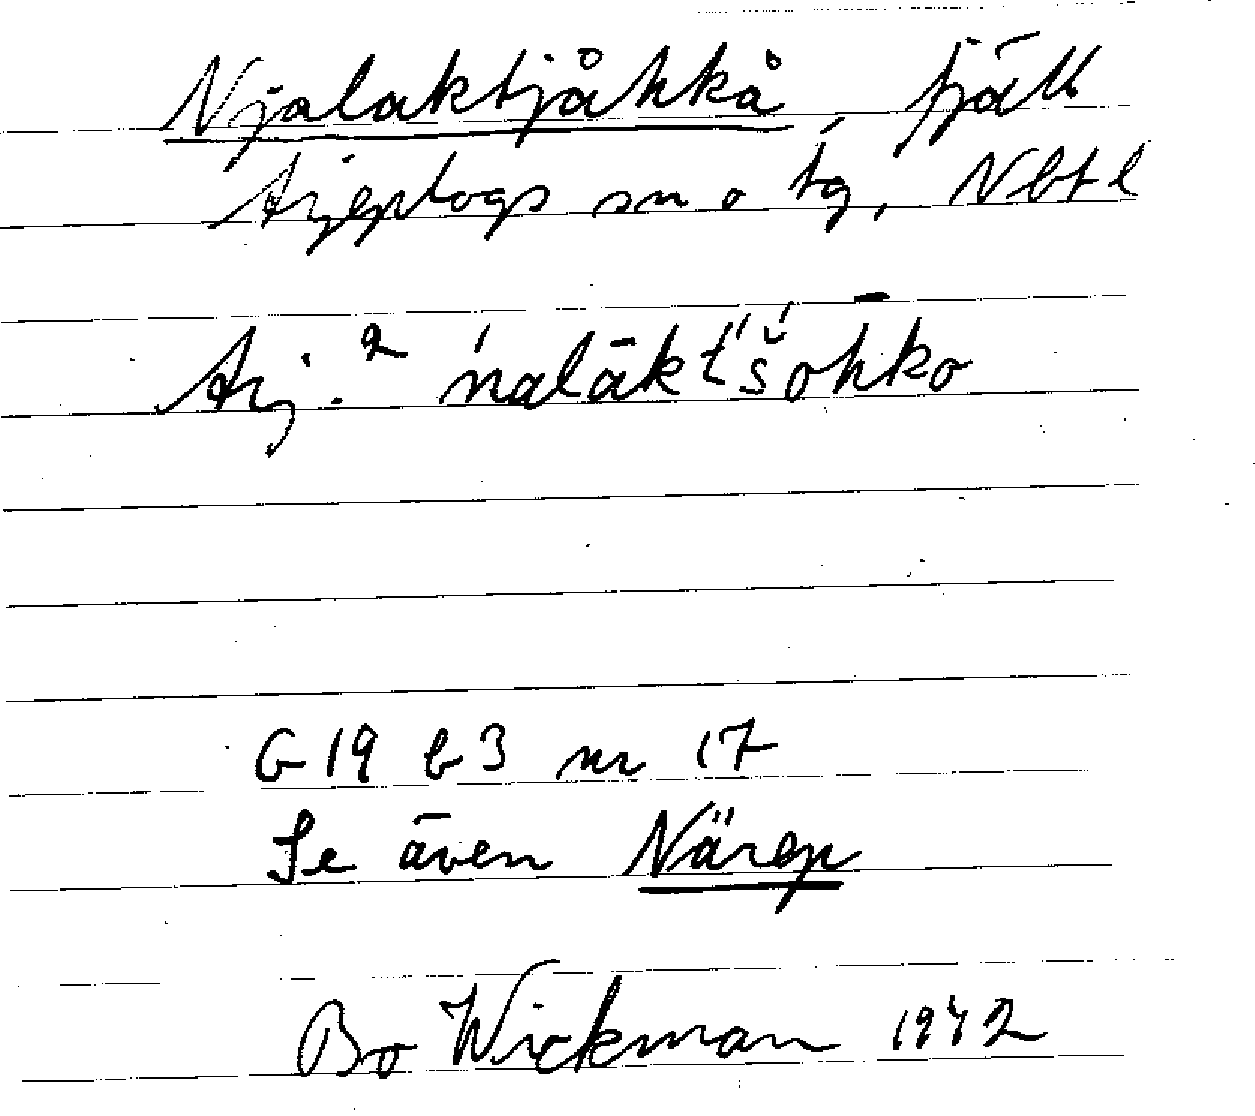 Njalaktjåkkå, fjäll
Arjeplogs sn o tg, Nbtl
Arj.² ńalāktʹšʹohko
G 19 b 3 nr 17
Se även Närep
Bo Wickman 1942